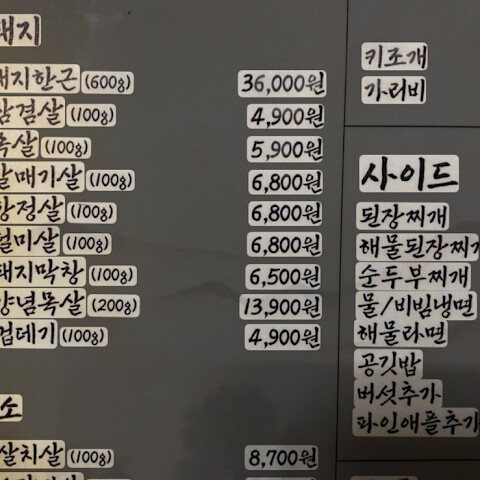 돼지
돼지한근 (600g) 36,000원
삼겹살 (100g) 4,900원
목살 (100g) 5,900원
갈매기살 (100g) 6,800원
항정살 (100g) 6,800원
덜미살 (100g) 6,800원
돼지막창 (100g) 6,500원
양념목살 (200g) 13,900원
껍데기 (100g) 4,900원
소
살치살 (100g) 8,700원
키조개
가리비
사이드
된장찌개
해물된장찌개
순두부찌개
물/비빔냉면
해물라면
공깃밥
버섯추가
파인애플추가